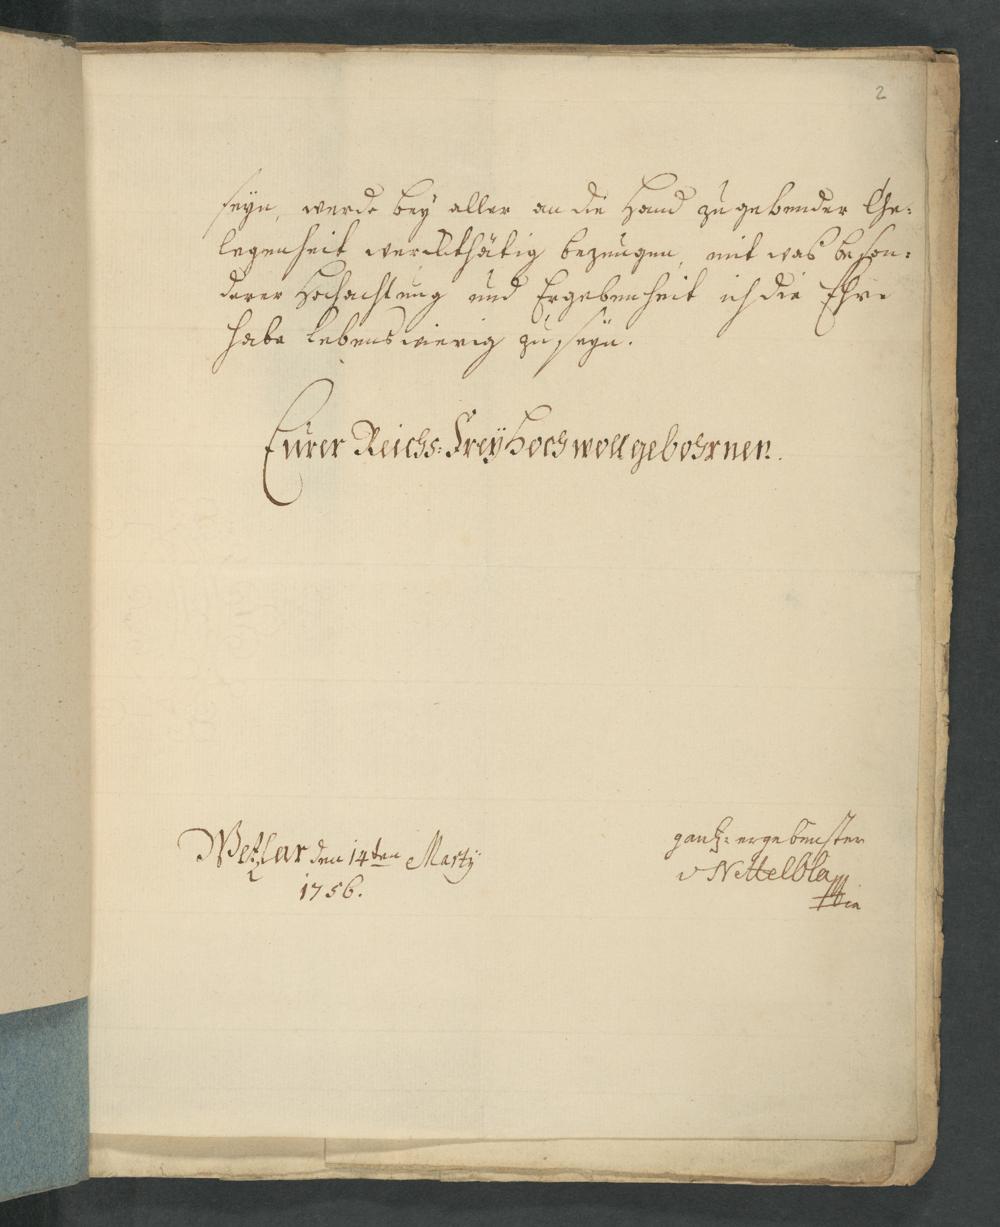 2
seyn, werde bey aller an die Hand zu gebender Ge:
legenheit werckthätig bezeugen, mit was beson:
derer Hochachtung und Ergebenheit ich die Ehre
habe lebenswierig zu seyn.
Eurer Reichs: Frey Hochwollgebohrnen.
Wetzlar den 14ten Marty
1756.
gantz: ergebenster
v Nettelbla